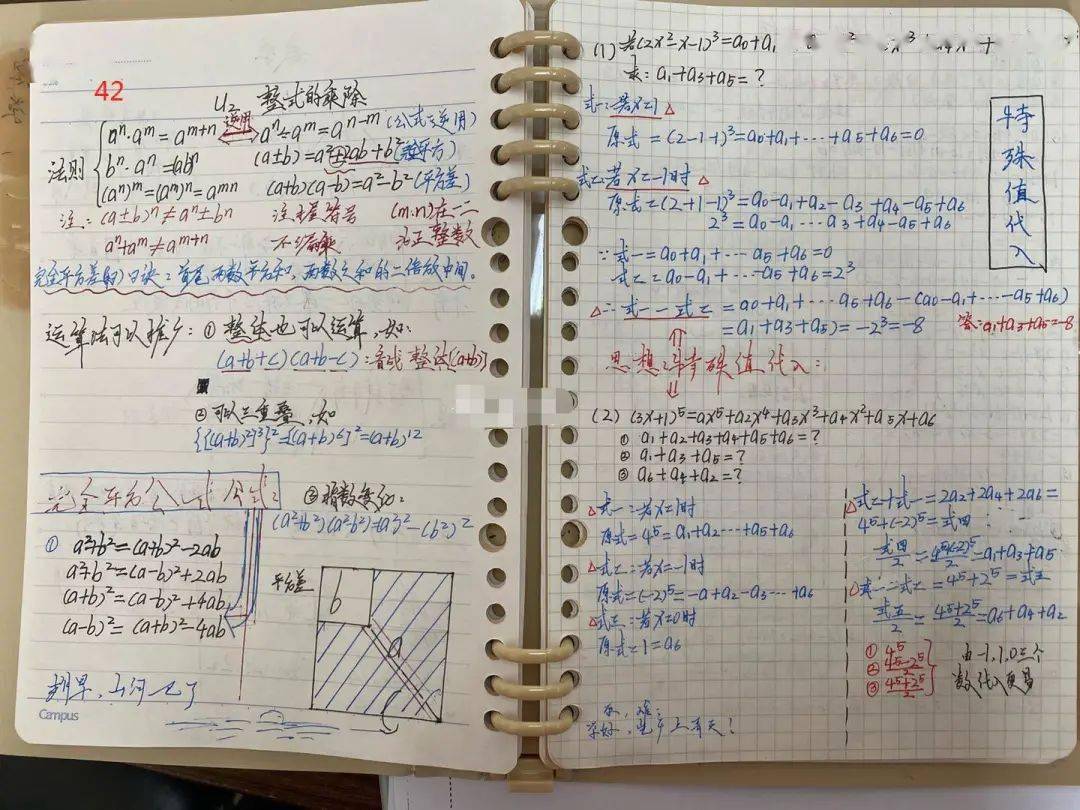 42
U₂ 整式的乘除
法则
aⁿ·aᵐ=aᵐ⁺ⁿ 逆用 aⁿ÷aᵐ=aⁿ⁻ᵐ(公式逆用)
bⁿ·aⁿ=(ab)ⁿ (a±b)=a²±2ab+b²(完全平方)
(aⁿ)ᵐ=(aᵐ)ⁿ=aᵐⁿ (a+b)(a-b)=a²-b²(平方差)
注:(a±b)ⁿ≠aⁿ±bⁿ (m·n)在一二
aⁿ+aᵐ≠aᵐ⁺ⁿ 为正整数
运算法可以推广:①整体也可以运算,如:
(a+b+c)(a+b-c):看成整体(a+b)
②可以三重叠,如
{[(a+b)²]³}²=[(a+b)⁶]²=(a+b)¹²
完全平方公式
③指数变化:
(a²+b²)(a²-b²)=(a²)²-(b²)²
① a²+b²=(a+b)²-2ab
a²+b²=(a-b)²+2ab
(a+b)²=(a-b)²+4ab
(a-b)²=(a+b)²-4ab
平方差
b
a
Campus
(1)若(2x²-x-1)³=a₀+a₁
求:a₁+a₃+a₅=?
特殊值代入
式一:若x=1
原式=(2-1-1)³=a₀+a₁+…+a₅+a₆=0
式二:若x=-1时
原式=(2+1-1)³=a₀-a₁+a₂-a₃+a₄-a₅+a₆
2³=a₀-a₁…+a₄-a₅+a₆
∵式一=a₀+a₁+…a₅+a₆=0
式二=a₀-a₁+…-a₅+a₆=2³
∴式一-式二=a₀+a₁+…a₅+a₆-(a₀-a₁+…-a₅+a₆)
=(a₁+a₃+a₅)=-2³=-8 答:a₁+a₃+a₅=-8
思想:特殊值代入:
(2)(3x+1)⁵=ax⁵+a₂x⁴+a₃x³+a₄x²+a₅x+a₆
① a₁+a₂+a₃+a₄+a₅+a₆=?
② a₁+a₃+a₅=?
③ a₆+a₄+a₂=?
式一:若x=1时
原式=4⁵=a₁+a₂…+a₅+a₆
式二:若x=-1时
原式=(-2)⁵=-a+a₂-a₃…+a₆
式三:若x=0时
原式=1=a₆
式二+式一=2a₂+2a₄+2a₆=
4⁵+(-2)⁵=式四
式四/2=4⁵(-2)⁵/2=a₁+a₃+a₅
式一-式二=4⁵+2⁵=式五
式五/2=4⁵+2⁵/2=a₆+a₄+a₂
① 4⁵
② 4⁵-2⁵/2
③ 4⁵+2⁵/2
由-1,1,0三个
数代入更易